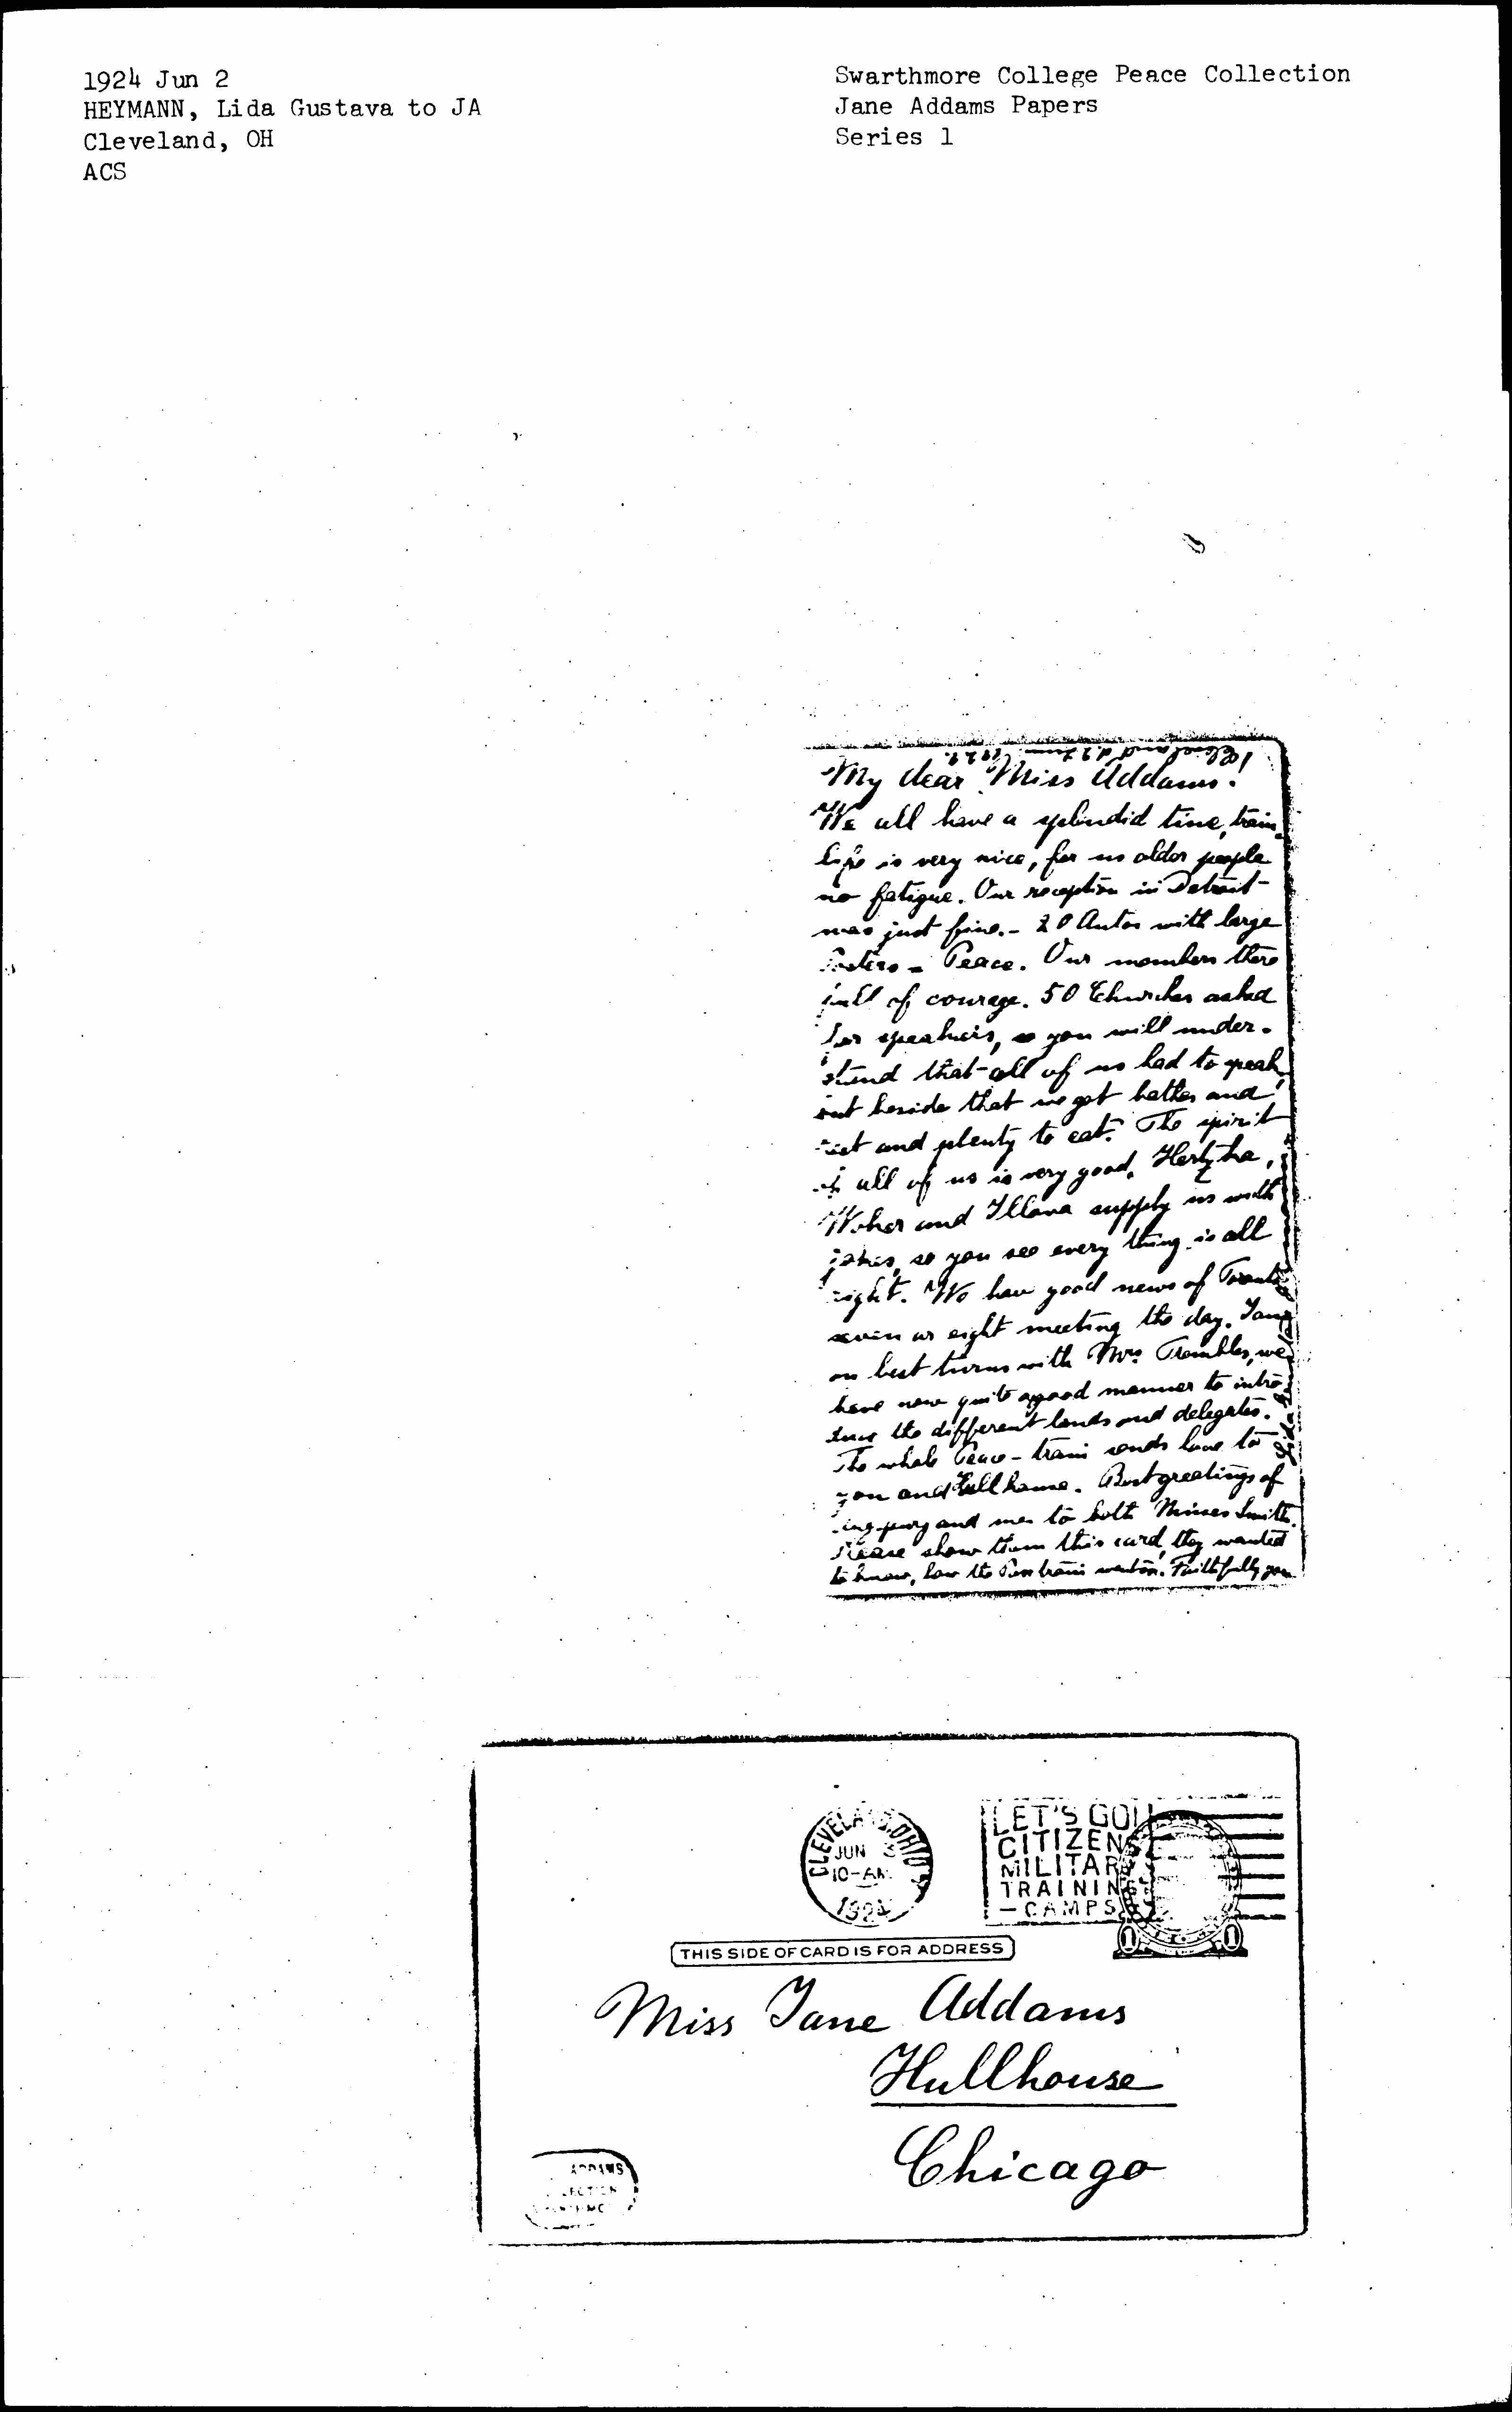 1924 Jun 2
HEYMANN, Lida Gustava to JA
Cleveland, OH
ACS
Swarthmore College Peace Collection
Jane Addams Papers
Series 1
Cleveland d. 2 June 1924.
My dear Miss Addams!
We all have a splendid time, train-
life is very nice, for us older people
no fatigue. Our reception in Detroit
was just fine. - 20 Autos with large
Posters - Peace. Our members there
full of courage. 50 Churches asked
for speakers, so you will under-
stand that all of us had to speak,
but beside that we got bathes and
rest and plenty to eat. The spirit
of all of us is very good. Hertzka,
and supply us with
jokes, so you see every thing is all
right. We have good news of
seven or eight meeting the day. I am
on best turms with Mrs.
have now quite a good manner to intro-
duce the different lands and delegates.
The whole Peace-train sends love to
you and Hullhouse. Best greetings of
and me to both Misses Smith.
Please show them this card, they wanted
to know, how the train went on. Faithfully your
Lida
CLEVELAND, OHIO
JUN 3
10-AM
1924
LET'S GO!
CITIZENS
MILITARY
TRAINING
-CAMPS
1 1
THIS SIDE OF CARD IS FOR ADDRESS
Miss Jane Addams
Hullhouse
Chicago
ADDAMS